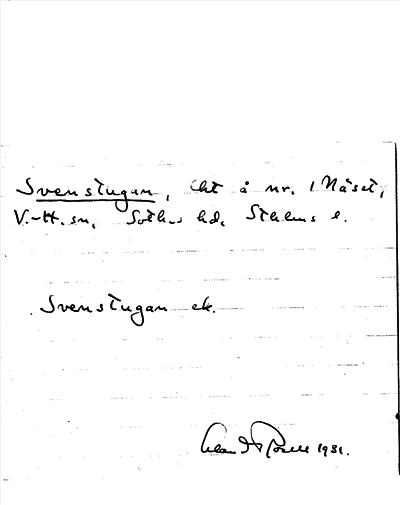 Svenstugan, lht å nr. 1 Näset,
V.-H. sn, Soth.s hd, Sthlms l.
Svenstugan ek.
1931.